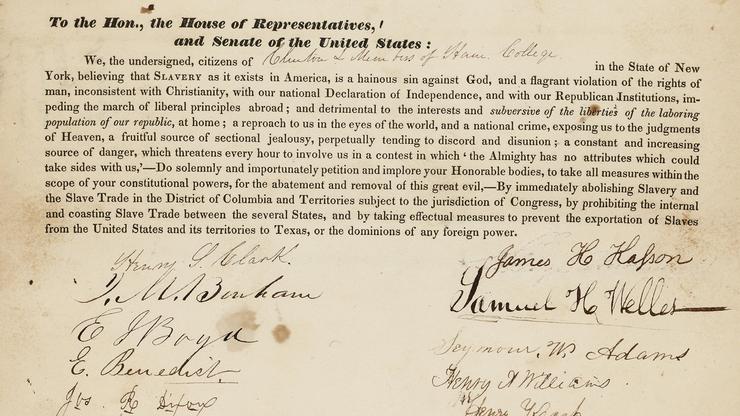 To the Hon., the House of Representatives,
and Senate of the United States:
We, the undersigned, citizens of Clinton & Members of Ham. College in the State of New
York, believing that SLAVERY as it exists in America, is a hainous sin against God, and a flagrant violation of the rights of
man, inconsistent with Christianity, with our national Declaration of Independence, and with our Republican Institutions, im-
peding the march of liberal principles abroad; and detrimental to the interests and subversive of the liberties of the laboring
population of our republic, at home; a reproach to us in the eyes of the world, and a national crime, exposing us to the judgments
of Heaven, a fruitful source of sectional jealousy, perpetually tending to discord and disunion; a constant and increasing
source of danger, which threatens every hour to involve us in a contest in which 'the Almighty has no attributes which could
take sides with us,'—Do solemnly and importunately petition and implore your Honorable bodies, to take all measures within the
scope of your constitutional powers, for the abatement and removal of this great evil,—By immediately abolishing Slavery and
the Slave Trade in the District of Columbia and Territories subject to the jurisdiction of Congress, by prohibiting the internal
and coasting Slave Trade between the several States, and by taking effectual measures to prevent the exportation of Slaves
from the United States and its territories to Texas, or the dominions of any foreign power.
Henry S. Clark.
D. M. Benham
E J Boyd
E. Benedict.
Jos R Dixon
James H Hasson
Samuel H Welles
Seymour W Adams
Henry A Williams
Henry